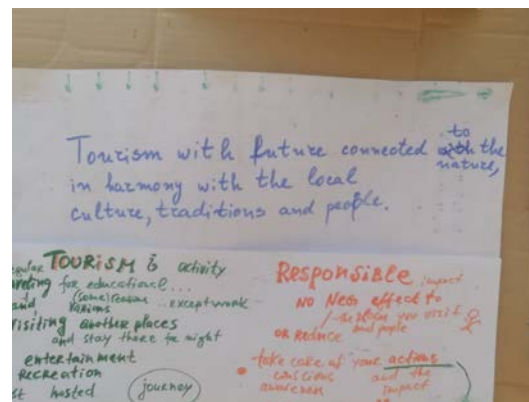 Tourism with future connected to the
nature,
in harmony with the local
culture, traditions and people.
TOURISM is activity
for educational...
(some) reason .. except work
visiting another places
and stay there for night
entertainment
RECREATION
hosted
journey
RESPONSIBLE impact
NO NEG effect to
place you visit
and people
OR REDUCE
• take care of your actions
conscious and the
awareness impact